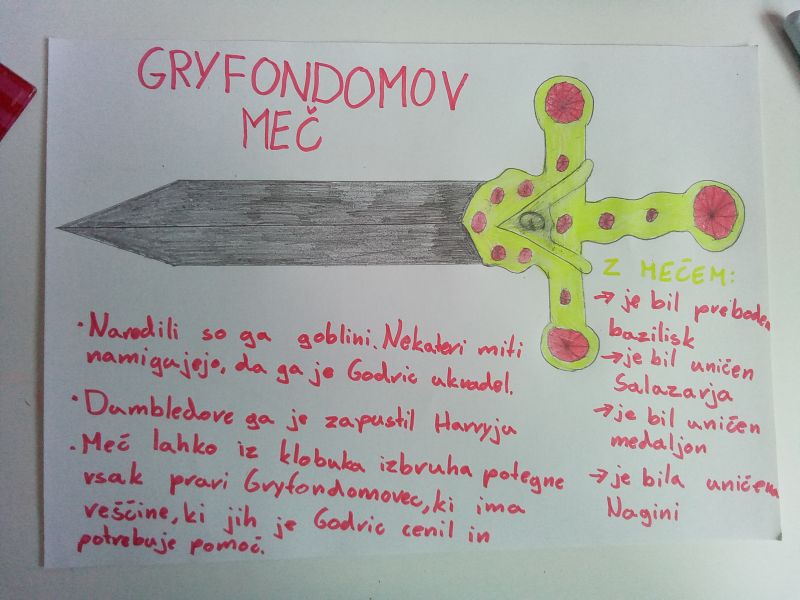 GRYFONDOMOV
MEČ
• Naredili so ga goblini. Nekateri miti
namigujejo, da ga je Godric ukradel.
• Dumbledore ga je zapustil Harryju
• Meč lahko iz klobuka izbruha potegne
vsak pravi Gryfondomovec, ki ima
veščine, ki jih je Godric cenil in
potrebuje pomoč.
Z MEČEM:
→ je bil preboden
bazilisk
→ je bil uničen
Salazarja
→ je bil uničen
medaljon
→ je bila uničena
Nagini